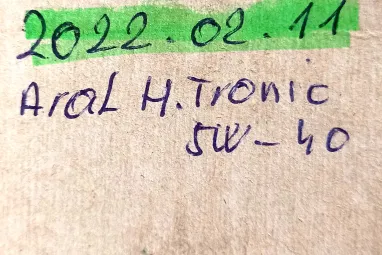 2022.02.11
Aral H.Tronic
5W-40